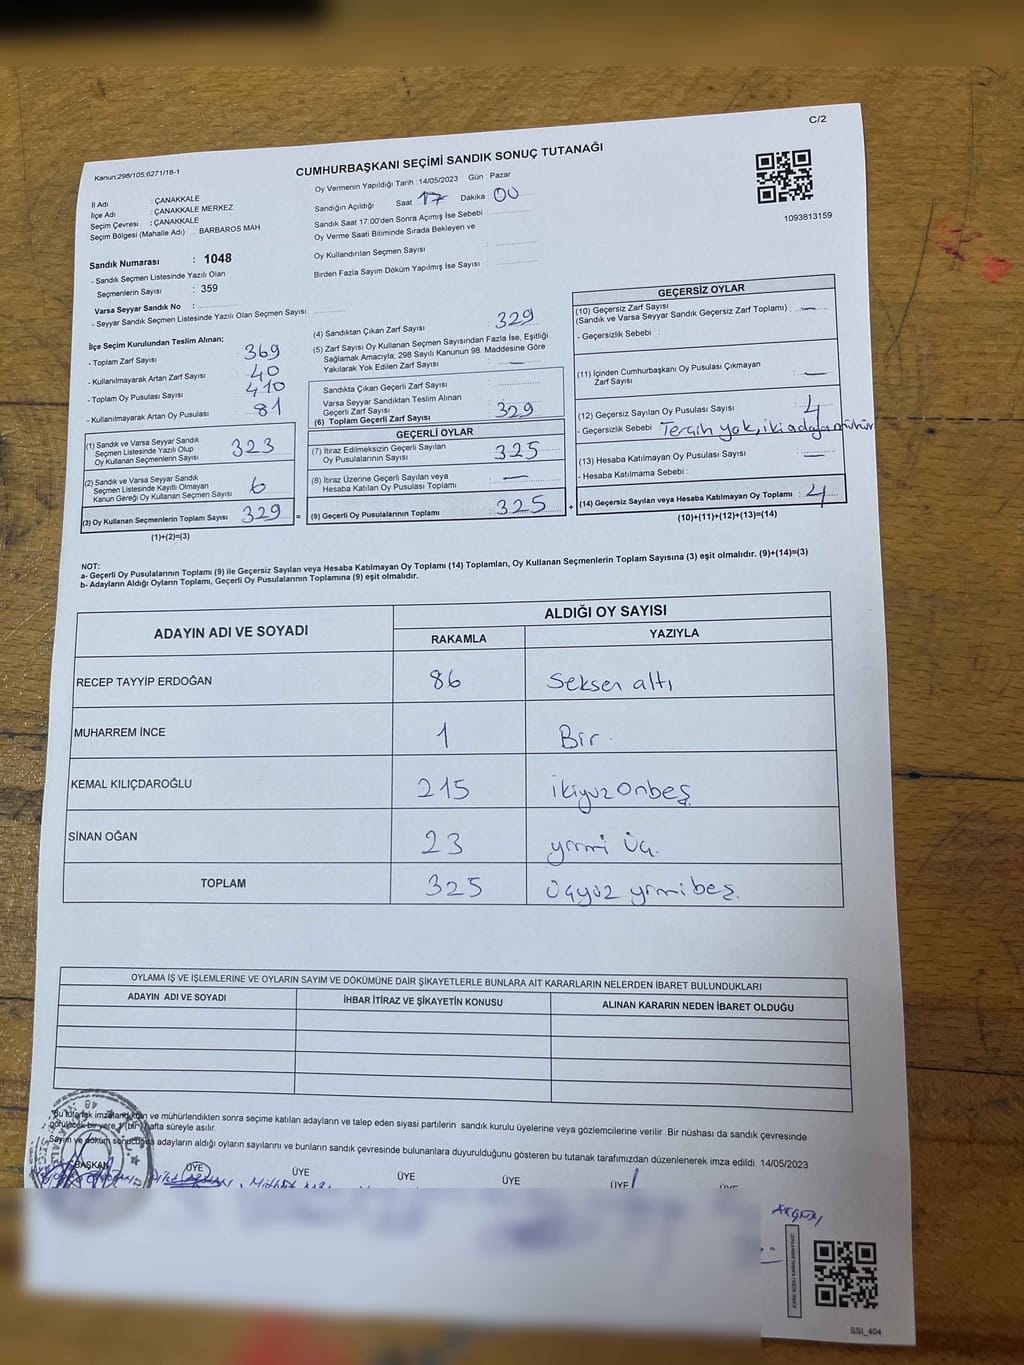 C/2
Kanun:298/105,6271/16-1
CUMHURBAŞKANI SEÇİMİ SANDIK SONUÇ TUTANAĞI
Oy Vermenin Yapıldığı Tarih :14/05/2023 Gün : Pazar
Sandığın Açıldığı Saat 17 Dakika : 00
Sandık Saat 17:00'den Sonra Açımış İse Sebebi :
Oy Verme Saati Bitiminde Sırada Bekleyen ve
Oy Kullandırılan Seçmen Sayısı :
Birden Fazla Sayım Döküm Yapılmış İse Sayısı :
1093813159
İl Adı : ÇANAKKALE
İlçe Adı : ÇANAKKALE MERKEZ
Seçim Çevresi : ÇANAKKALE
Seçim Bölgesi (Mahalle Adı) : BARBAROS MAH
Sandık Numarası : 1048
- Sandık Seçmen Listesinde Yazılı Olan
Seçmenlerin Sayısı : 359
Varsa Seyyar Sandık No :
- Seyyar Sandık Seçmen Listesinde Yazılı Olan Seçmen Sayısı :
İlçe Seçim Kurulundan Teslim Alınan;
- Toplam Zarf Sayısı : 369
- Kullanılmayarak Artan Zarf Sayısı : 40
- Toplam Oy Pusulası Sayısı : 410
- Kullanılmayarak Artan Oy Pusulası : 81
(1) Sandık ve Varsa Seyyar Sandık
Seçmen Listesinde Yazılı Olup
Oy Kullanan Seçmenlerin Sayısı : 323
(2) Sandık ve Varsa Seyyar Sandık
Seçmen Listesinde Kayıtlı Olmayan
Kanun Gereği Oy Kullanan Seçmen Sayısı : 6
(3) Oy Kullanan Seçmenlerin Toplam Sayısı : 329 =
(1)+(2)=(3)
(4) Sandıktan Çıkan Zarf Sayısı : 329
(5) Zarf Sayısı Oy Kullanan Seçmen Sayısından Fazla İse, Eşitliği
Sağlamak Amacıyla, 298 Sayılı Kanunun 98. Maddesine Göre
Yakılarak Yok Edilen Zarf Sayısı : —
Sandıkta Çıkan Geçerli Zarf Sayısı :
Varsa Seyyar Sandıktan Teslim Alınan
Geçerli Zarf Sayısı :
(6) Toplam Geçerli Zarf Sayısı : 329
GEÇERLİ OYLAR
(7) İtiraz Edilmeksizin Geçerli Sayılan
Oy Pusulalarının Sayısı : 325
(8) İtiraz Üzerine Geçerli Sayılan veya
Hesaba Katılan Oy Pusulası Toplamı : —
(9) Geçerli Oy Pusulalarının Toplamı : 325 +
GEÇERSİZ OYLAR
(10) Geçersiz Zarf Sayısı
(Sandık ve Varsa Seyyar Sandık Geçersiz Zarf Toplamı) : —
- Geçersizlik Sebebi :
(11) İçinden Cumhurbaşkanı Oy Pusulası Çıkmayan
Zarf Sayısı : —
(12) Geçersiz Sayılan Oy Pusulası Sayısı : 4
- Geçersizlik Sebebi : Tercih yok, iki adaya mühür
(13) Hesaba Katılmayan Oy Pusulası Sayısı : —
- Hesaba Katılmama Sebebi :
(14) Geçersiz Sayılan veya Hesaba Katılmayan Oy Toplamı : 4
(10)+(11)+(12)+(13)=(14)
NOT:
a- Geçerli Oy Pusulalarının Toplamı (9) ile Geçersiz Sayılan veya Hesaba Katılmayan Oy Toplamı (14) Toplamları, Oy Kullanan Seçmenlerin Toplam Sayısına (3) eşit olmalıdır. (9)+(14)=(3)
b- Adayların Aldığı Oyların Toplamı, Geçerli Oy Pusulalarının Toplamına (9) eşit olmalıdır.
ADAYIN ADI VE SOYADI ALDIĞI OY SAYISI
RAKAMLA YAZIYLA
RECEP TAYYİP ERDOĞAN 86 Seksen altı
MUHARREM İNCE 1 Bir.
KEMAL KILIÇDAROĞLU 215 ikiyüz onbeş
SİNAN OĞAN 23 yirmi üç.
TOPLAM 325 Üçyüz yirmibeş.
OYLAMA İŞ VE İŞLEMLERİNE VE OYLARIN SAYIM VE DÖKÜMÜNE DAİR ŞİKAYETLERLE BUNLARA AİT KARARLARIN NELERDEN İBARET BULUNDUKLARI
ADAYIN ADI VE SOYADI İHBAR İTİRAZ VE ŞİKAYETİN KONUSU ALINAN KARARIN NEDEN İBARET OLDUĞU
"Bu tutanak imzalandıktan ve mühürlendikten sonra seçime katılan adayların ve talep eden siyasi partilerin sandık kurulu üyelerine veya gözlemcilerine verilir .Bir nüshası da sandık çevresinde
görülecek bir yere 1 (bir) hafta süreyle asılır.
Sayım ve döküm sonucunda adayların aldığı oyların sayılarını ve bunların sandık çevresinde bulunanlara duyurulduğunu gösteren bu tutanak tarafımızdan düzenlenerek imza edildi. 14/05/2023
BAŞKAN ÜYE ÜYE ÜYE ÜYE ÜYE ÜYE
KARE KODU KARALAMAYINIZ!
SSI_404